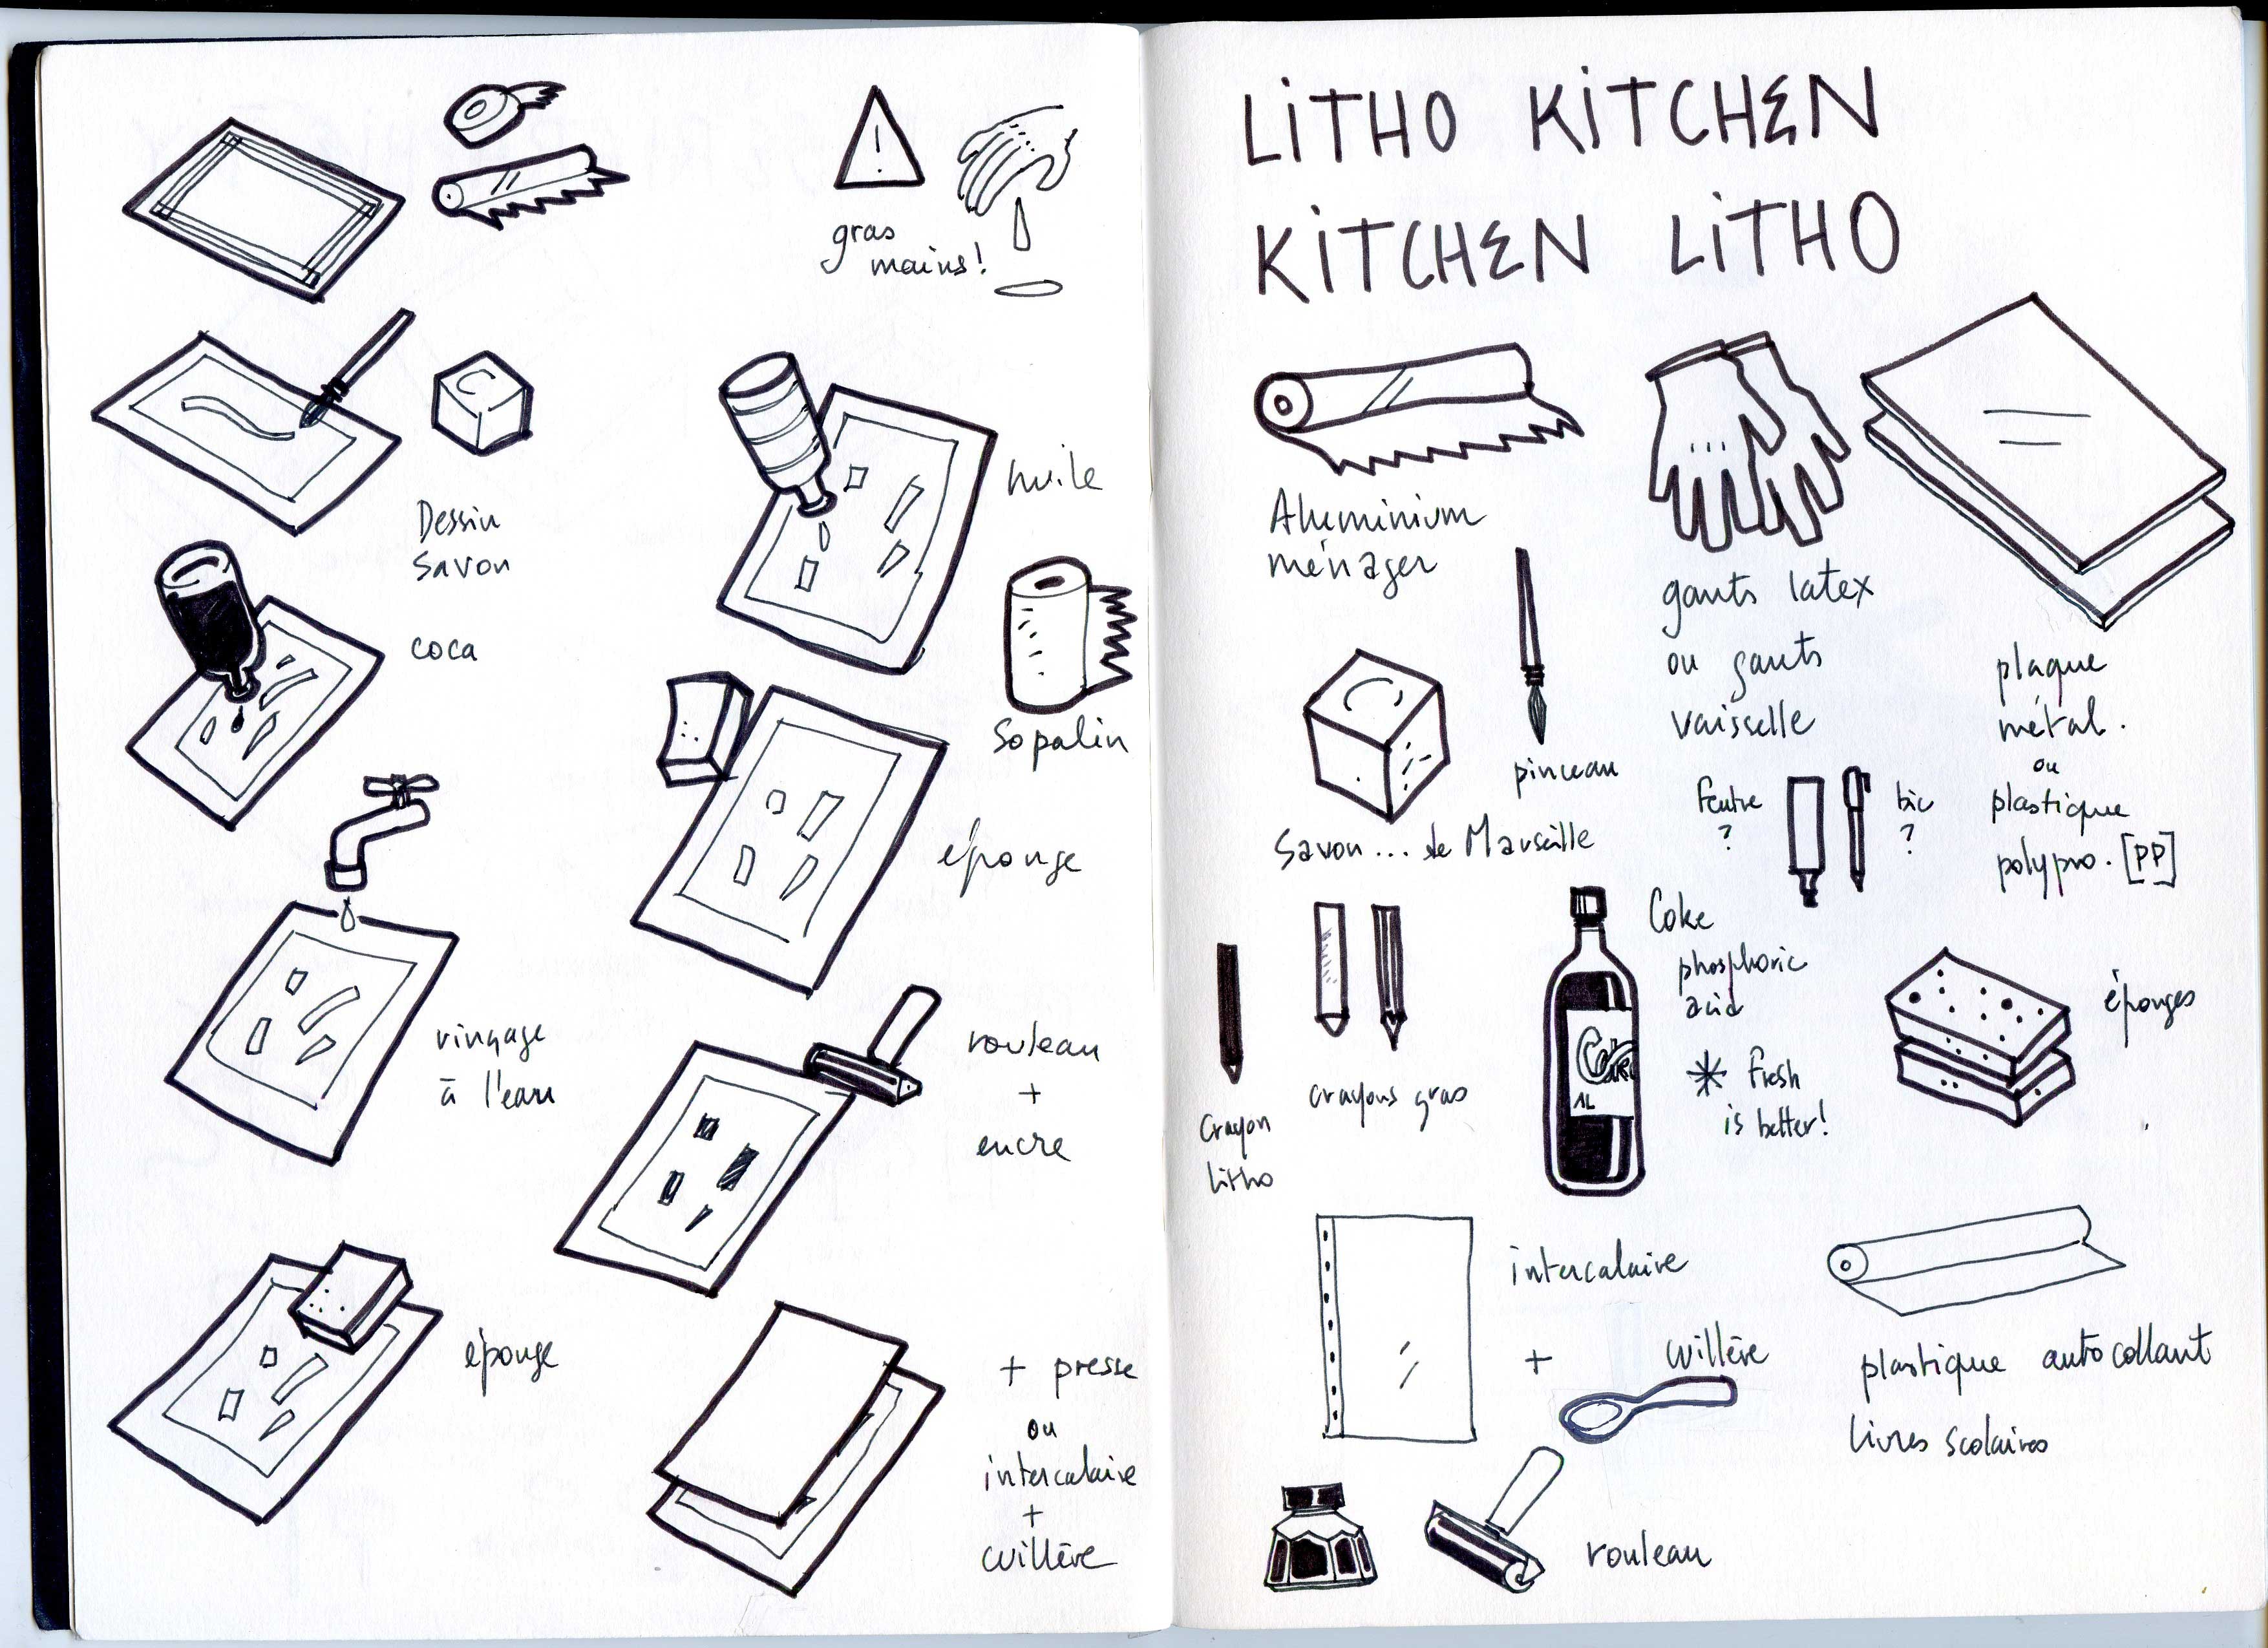 gras
mains!
Dessin
savon
coca
rinçage
à l'eau
éponge
huile
Sopalin
éponge
rouleau
+
encre
+ presse
ou
intercalaire
+
cuillère
LiTHO KiTCHEN
KiTCHEN LiTHO
Aluminium
ménager
gants latex
ou gants
vaisselle
plaque
métal.
ou
plastique
polypro. [PP]
pinceau
Savon... de Marseille
Feutre
?
bic
?
Crayon
litho
crayons gras
Coke
1L
Coke
phosphoric
acid
* Fresh
is better!
éponges
intercalaire
+
cuillère
plastique autocollant
livres scolaires
rouleau